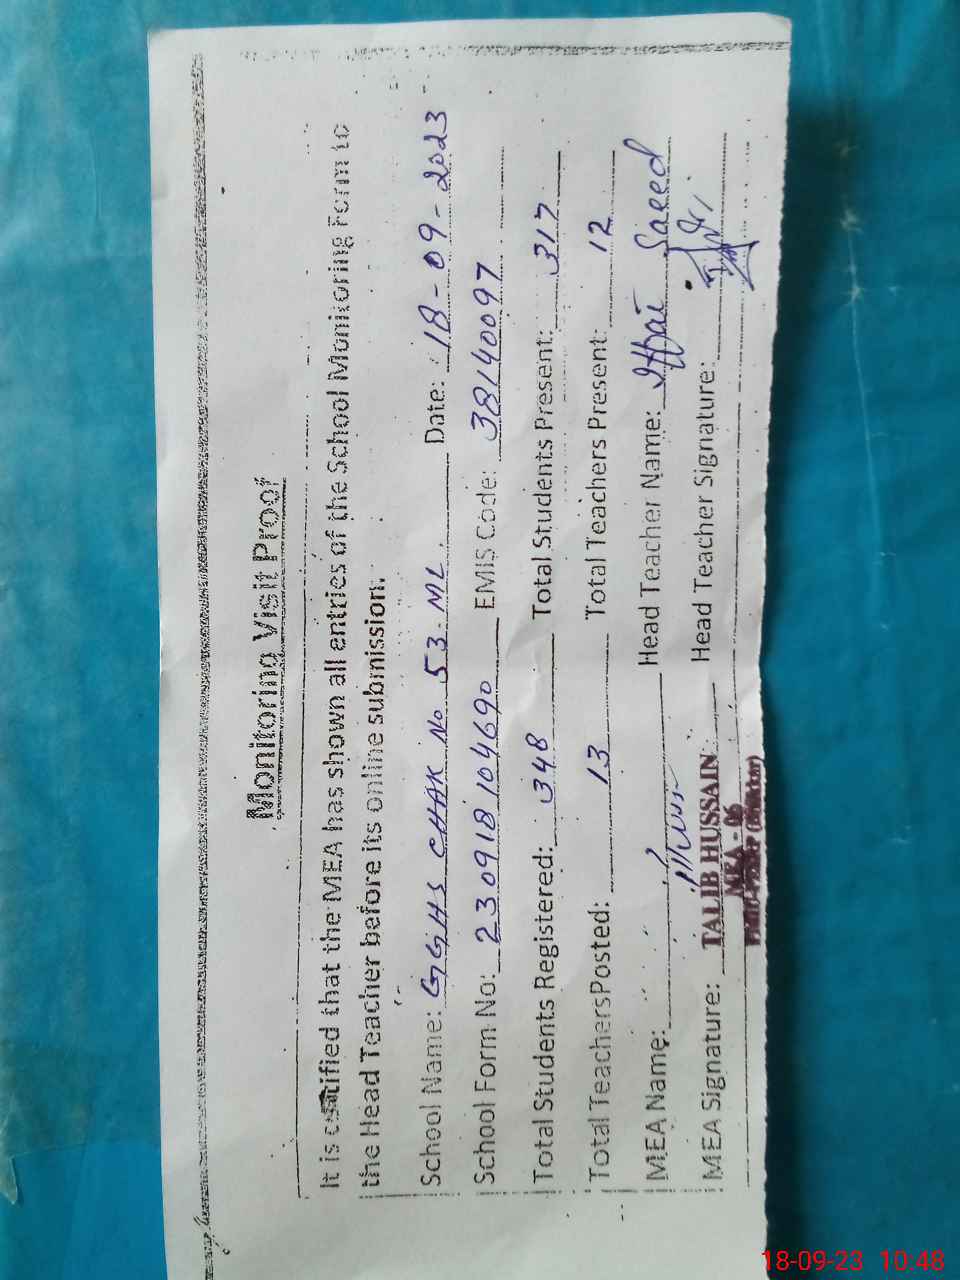 Monitoring Visit Proof
It is certified that the MEA has shown all entries of the School Monitoring Form to
the Head Teacher before its online submission.
School Name: GGHS CHAK No 53 ML. Date: 18-09-2023
School Form No: 230918104690 EMIS Code: 38140097
Total Students Registered: 348 Total Students Present: 317
Total TeachersPosted: 13 Total Teachers Present: 12
MEA Name: Head Teacher Name: Saeed
MEA Signature: Head Teacher Signature:
TALIB HUSSAIN
MEA - 06
18-09-23 10:48